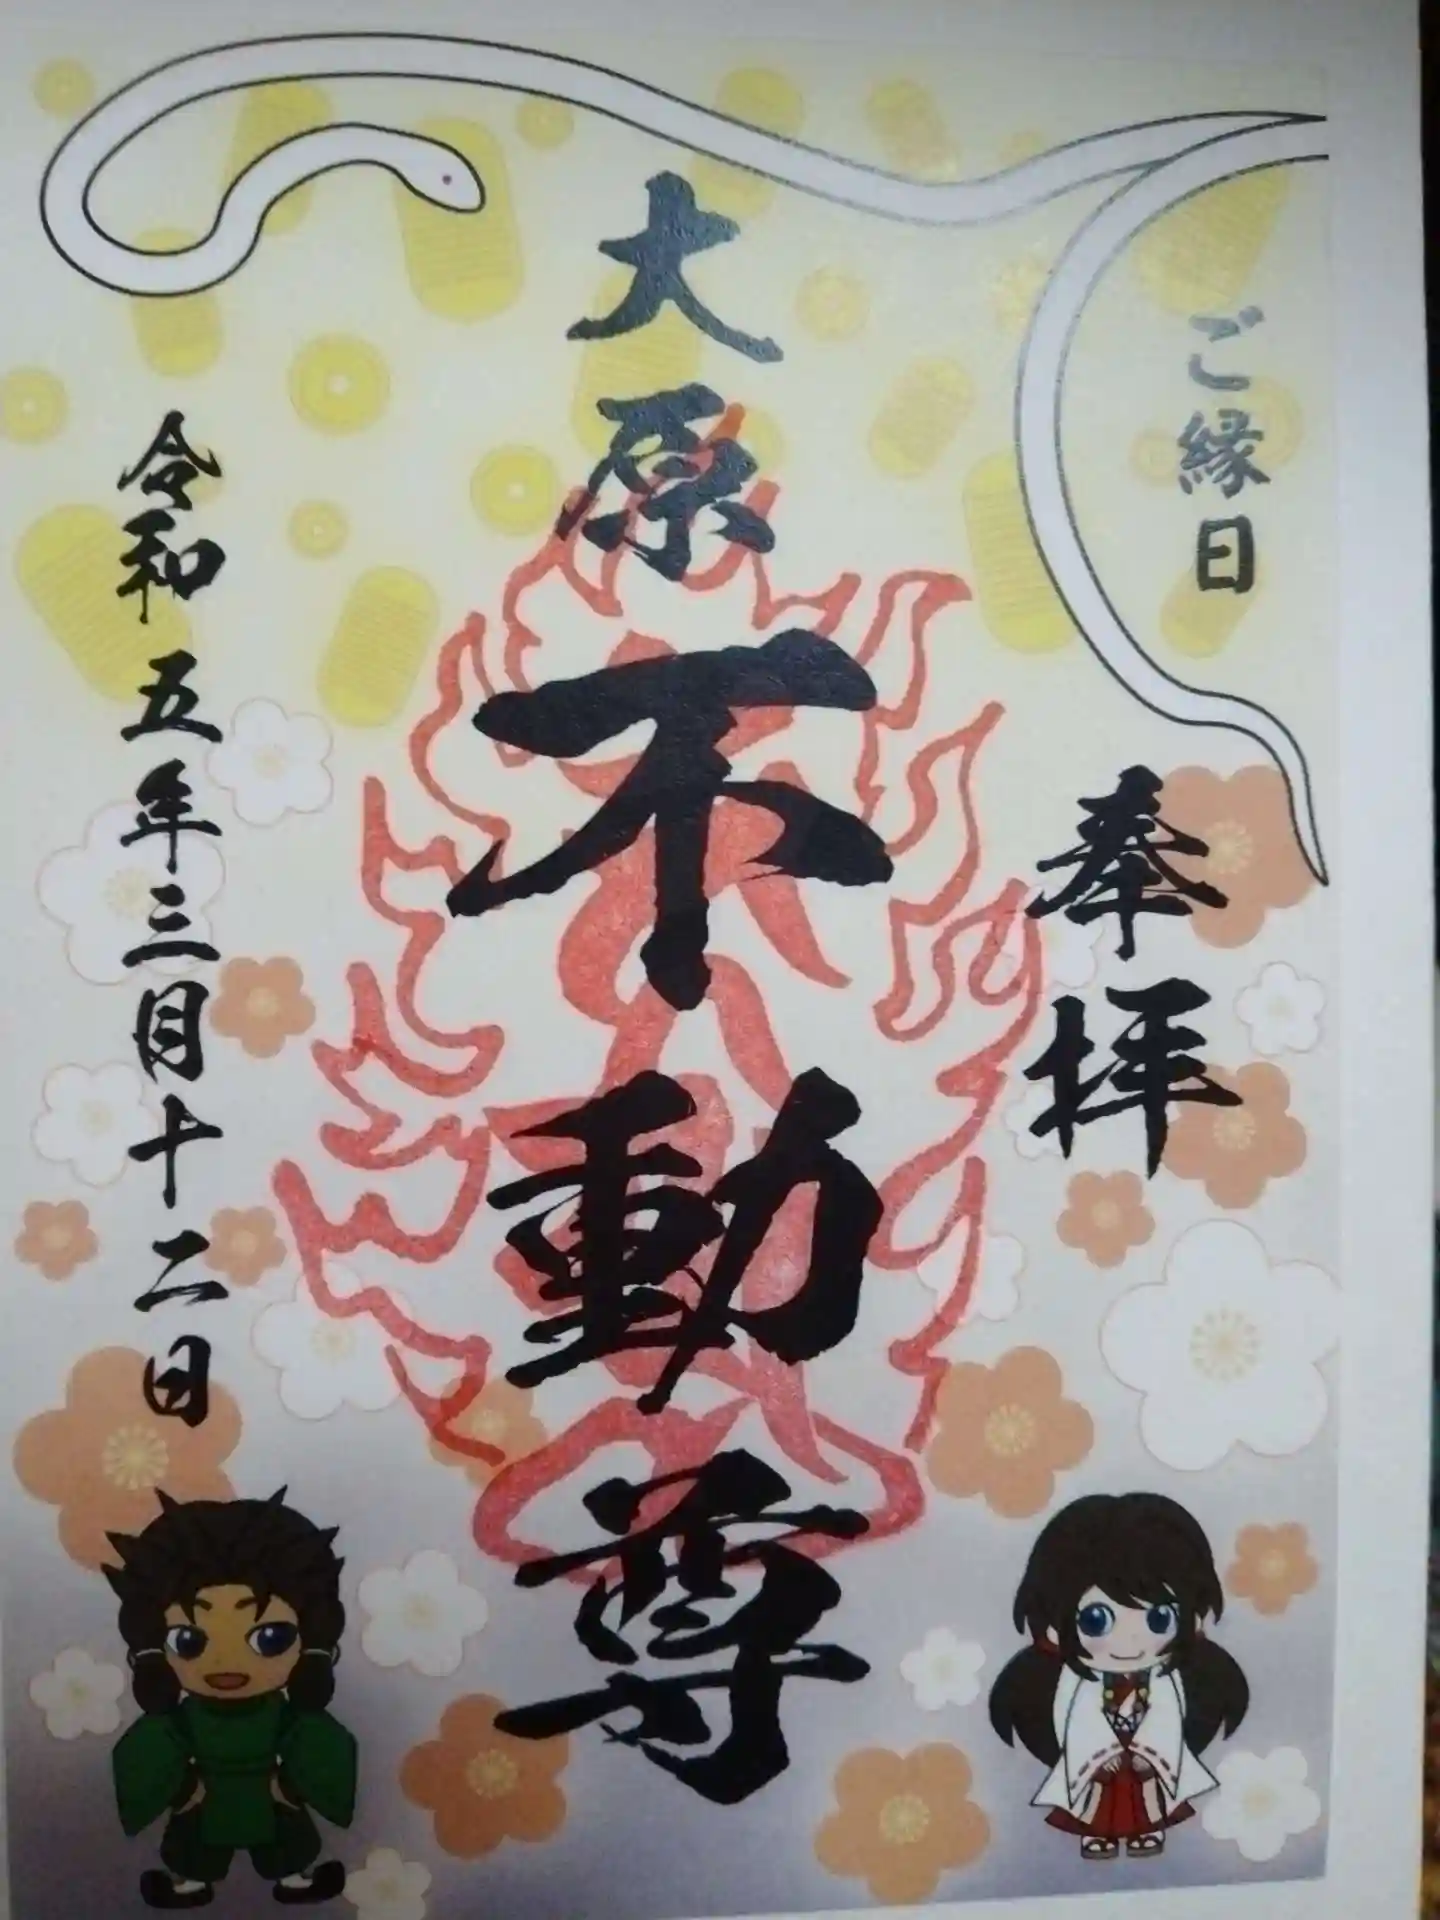 ご縁日
奉拝
大原不動尊
令和五年三月十二日